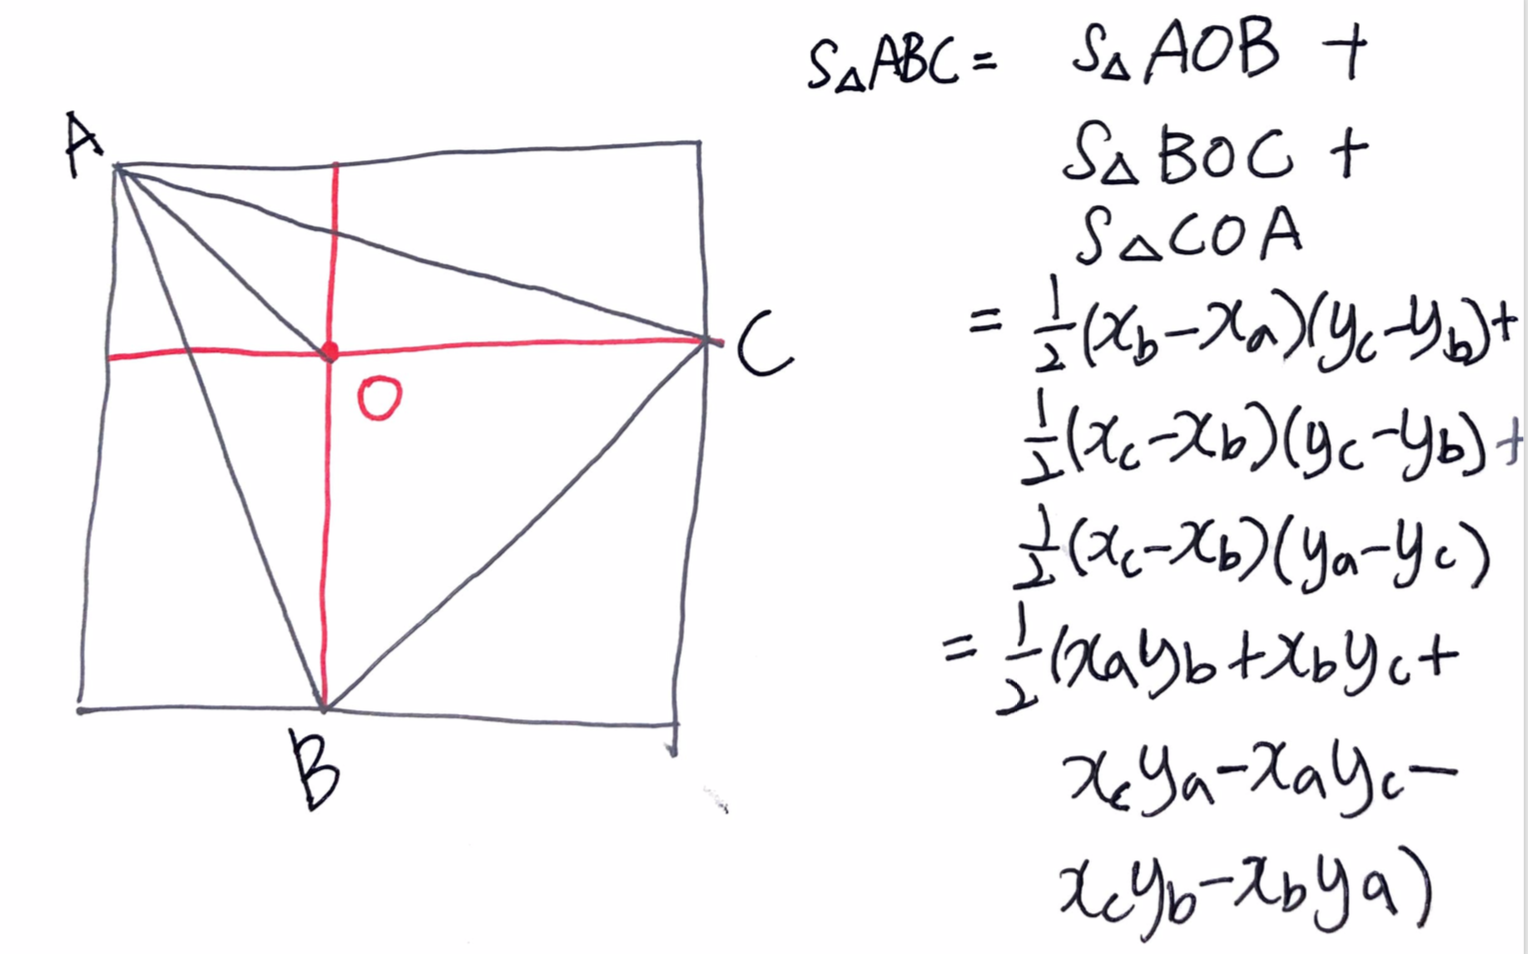 A
C
O
B
S△ABC = S△AOB +
S△BOC +
S△COA
= 1/2(xb-xa)(yc-yb)+
1/2(xc-xb)(yc-yb)+
1/2(xc-xb)(ya-yc)
= 1/2(xayb+xbyc+
xcya-xayc-
xcyb-xbya)